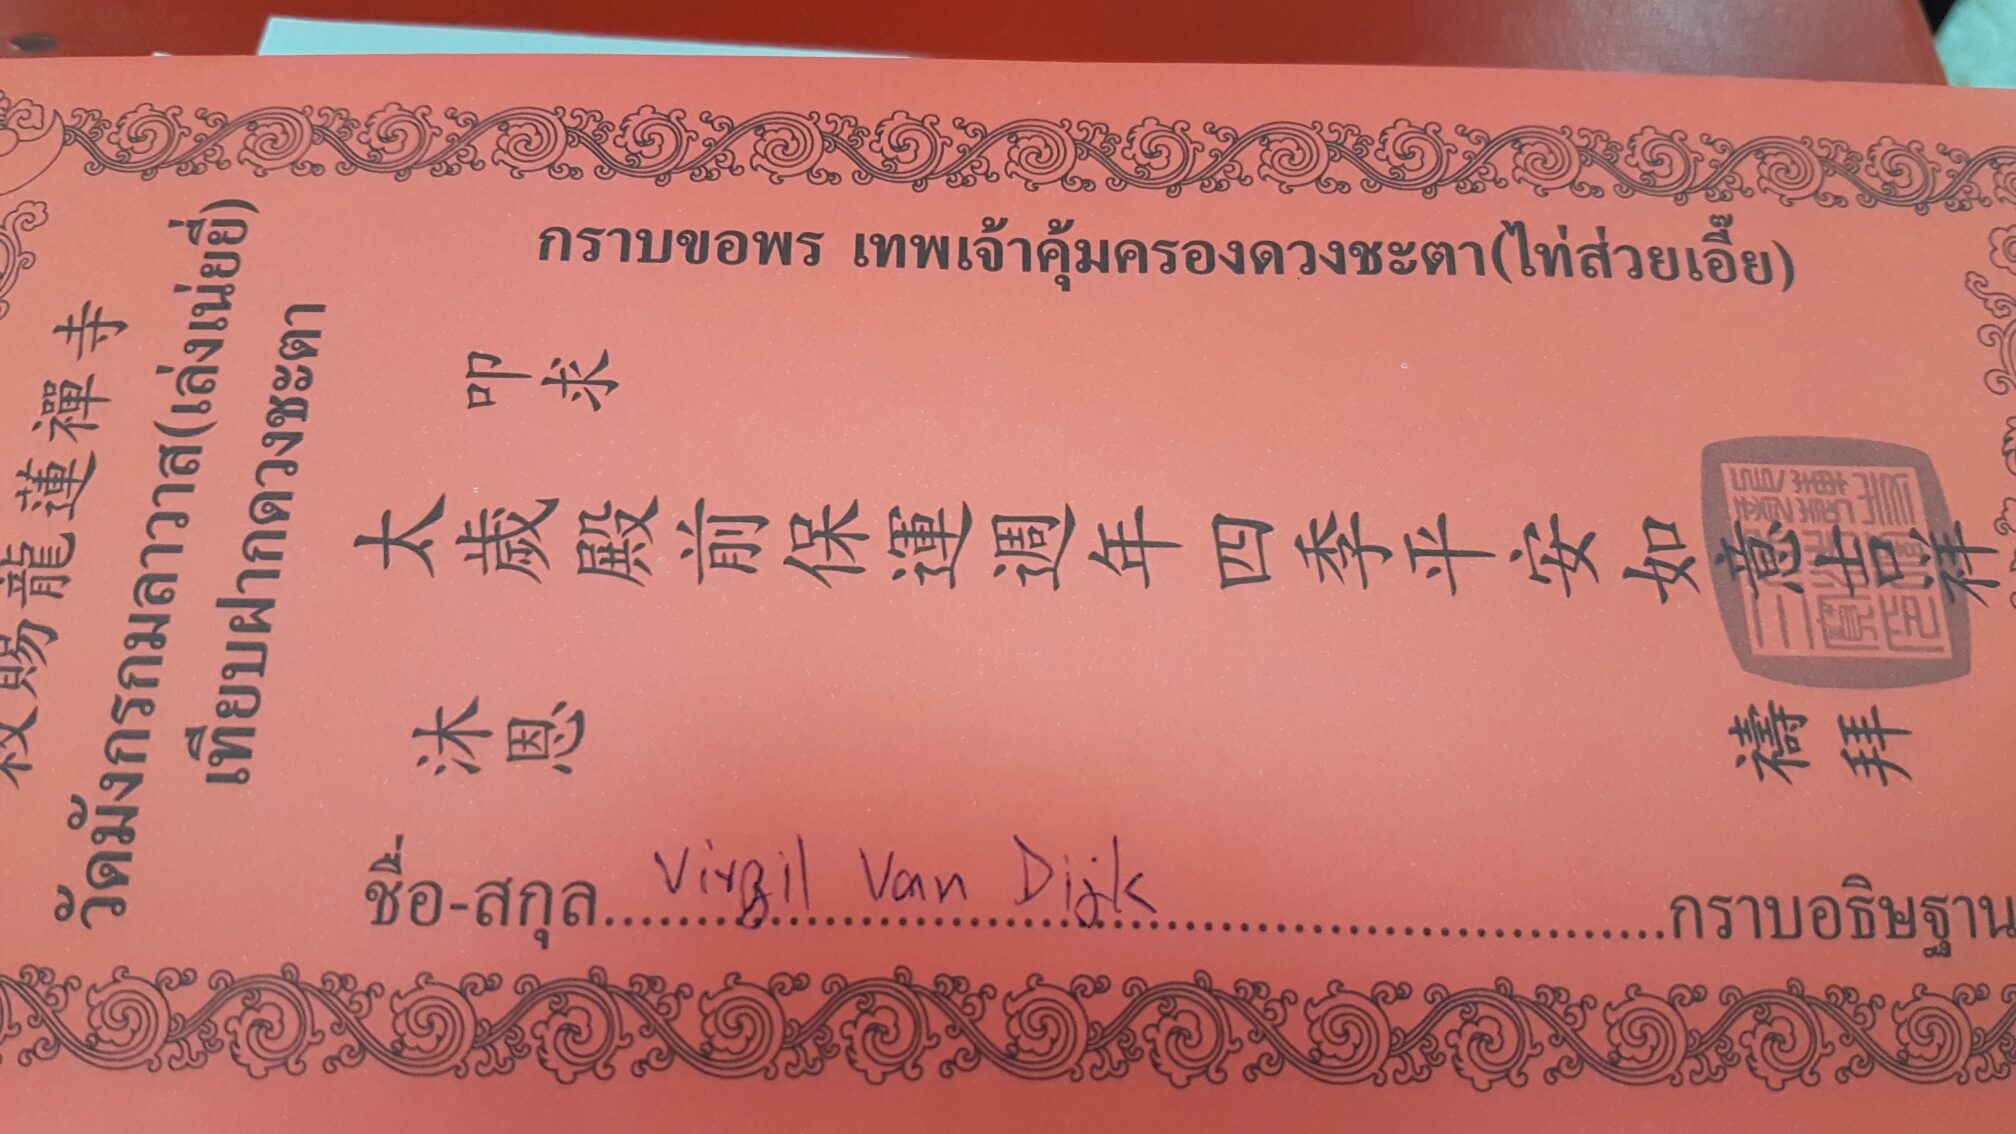 敕賜龍蓮禪寺
วัดมังกรกมลาวาส(เล่งเน่ยยี่)
เทียบฝากดวงชะตา
กราบขอพร เทพเจ้าคุ้มครองดวงชะตา(ไท่ส่วยเอี๊ย)
叩求
太歲殿前保運週年四季平安如意吉祥
沐恩
禱拜
ชื่อ-สกุล....................กราบอธิษฐาน
Virgil Van Dijk